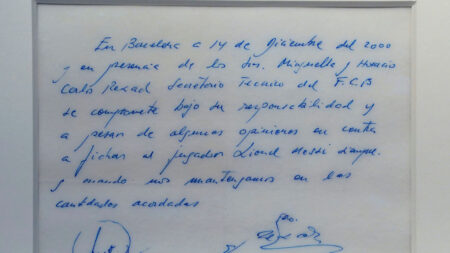 En Barcelona a 14 de Diciembre del 2000
y en presencia de los Srs. Minguella y Horacio
Carlo Rexach Secretario Tecnico del F.C.B
se compromete bajo su responsabilidad y
a pesar de algunas opiniones en contra
a fichar al jugador Lionel Messi siempre
y cuando nos mantengamos en las
cantidades acordadas